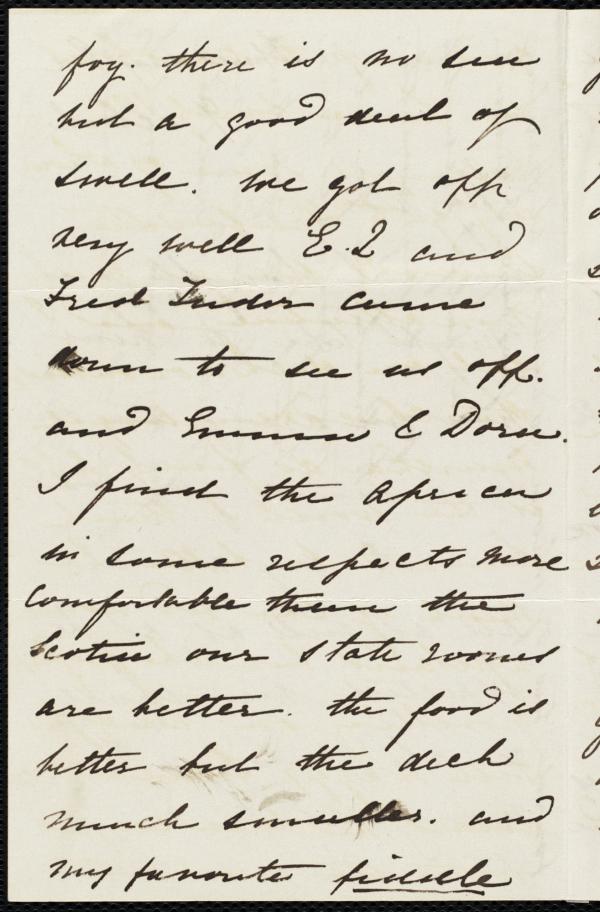 foy. there is no sea
but a good deal of
swell. we got off
very well E. I and
Fred Tudor came
down to see us off.
and Emma & Dora.
I find the Africa
in some respects more
comfortable than the
Scotia our state rooms
are better. the food is
better but the deck
much smaller. and
my favorite fiddle